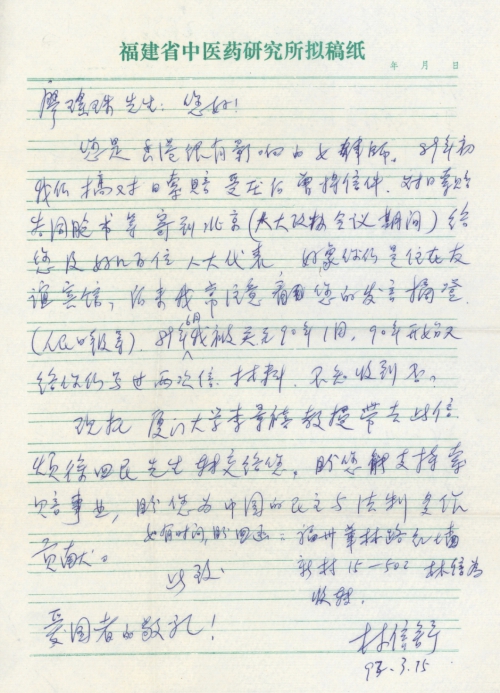 福建省中医药研究所拟稿纸
年 月 日
廖瑶珠先生：您好！
您是香港很有影响的女律师。89年初
我们搞对日索赔 受在后曾将信件、对日索赔
告同胞书等寄到北京（人大政协会议期间）给
您及好几百位人大代表，好象你们是住在友
谊宾馆，后来我常注意看您的发言摘登
（人民日报等）。89年6月我被关至90年1月，90年开始又
给你们写过两次信、材料，不知收到否？
现托厦门大学李景禧教授带去此信
烦徐四民先生转交给您。盼您能支持索
赔事业，盼您为中国的民主与法制多作
贡献。
如有时间，盼回函：福州华林路红墙
新村15—502 林信
收转。
此致
爱国者的敬礼！
林信舒
93.3.15